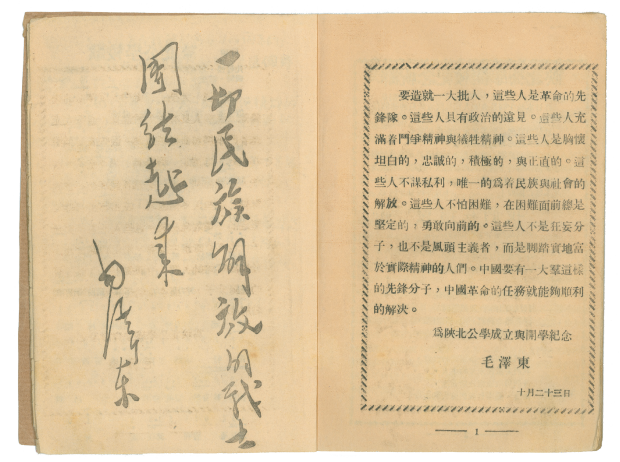 一切民族解放的战士
團結起来
毛澤东
要造就一大批人，這些人是革命的先
鋒隊。這些人具有政治的遠見。這些人充
滿着鬥爭精神與犧牲精神。這些人是胸懷
坦白的，忠誠的，積極的，與正直的。這
些人不謀私利，唯一的爲着民族與社會的
解放。這些人不怕困難，在困難面前總是
堅定的，勇敢向前的。這些人不是狂妄分
子，也不是風頭主義者，而是脚踏實地富
於實際精神的人們。中國要有一大羣這樣
的先鋒分子，中國革命的任務就能夠順利
的解决。
爲陝北公學成立與開學紀念
毛澤東
十月二十三日
1